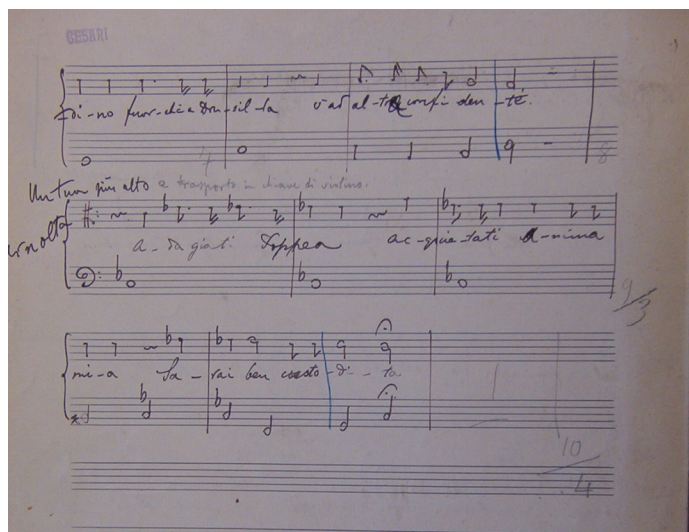 CESARI
di-no fuor-ch'a Dru-sil-la v'ad al-tr confi den-te.
8
Un tuon più alto e trasporto in chiave di violino.
Arnalta
A-da giati Poppea ac-quie-tati A-nima
9/3
mi-a Sa-rai ben custo-di-ta
10/4